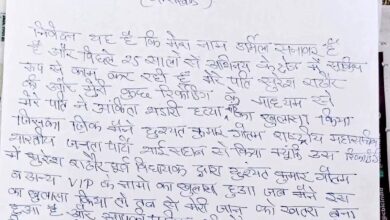 निवेदन यह है कि मेरा नाम उर्मिला सनावर है
है और पिछले 25 सालों से अभिनय के क्षेत्र में सक्रिय
रूप से काम कर रही है मेरे पति सुरेश राठौर
की और मेरी कुछ रिकॉर्डिंग के माध्यम से
मेरे पति ने अंकिता भंडारी हत्या का खुलासा किया
जिसका जिक्र मैंने दुष्यंत कुमार गौतम राष्ट्रीय महासचिव
भारतीय जनता पार्टी भाई साहब से किया क्यूंकि उस रिकॉर्डिंग
में सुरेश राठौर पूर्व विधायक द्वारा दुष्यंत कुमार गौतम
व अन्य VIP के नामों का खुलासा हुआ जब मैंने इस
का खुलासा किया तो तब से मेरी जान को खतरा बना
हुआ है और